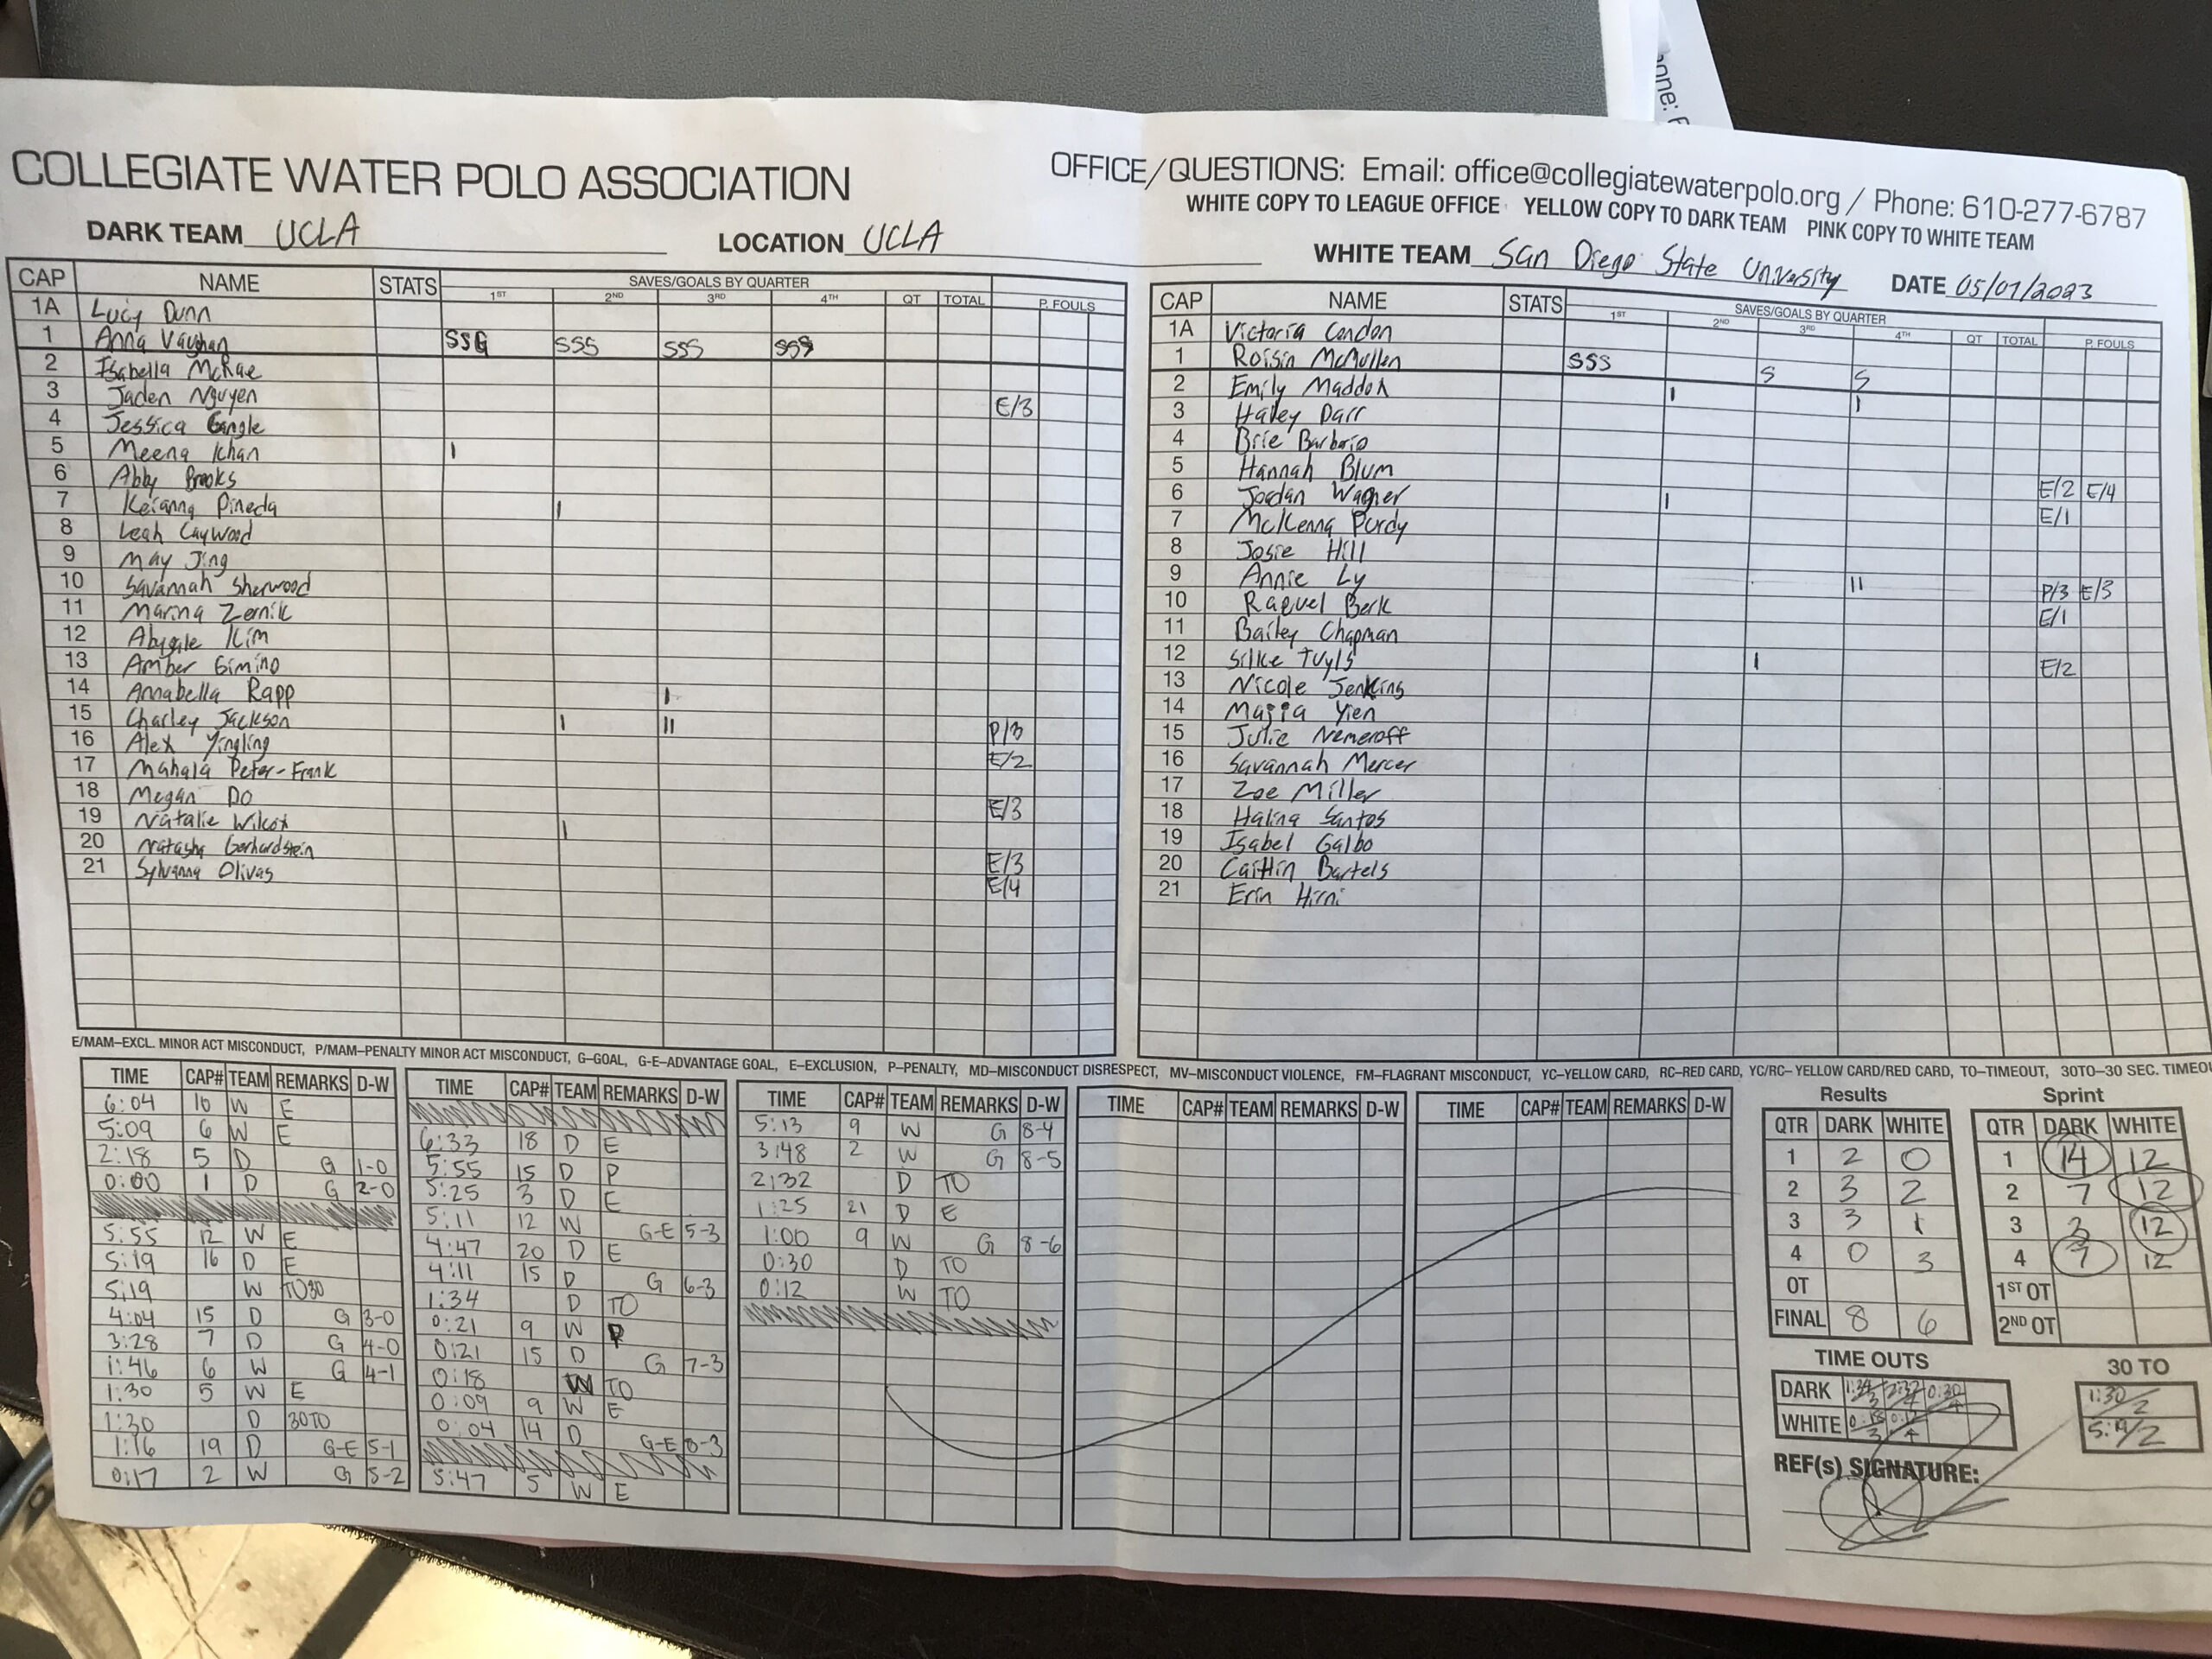 one: P
COLLEGIATE WATER POLO ASSOCIATION
OFFICE/QUESTIONS: Email: office@collegiatewaterpolo.org / Phone: 610-277-6787
WHITE COPY TO LEAGUE OFFICE YELLOW COPY TO DARK TEAM PINK COPY TO WHITE TEAM
DARK TEAM UCLA LOCATION UCLA
WHITE TEAM San Diego State University DATE 05/07/2023
CAP NAME STATS SAVES/GOALS BY QUARTER
1ST 2ND 3RD 4TH QT TOTAL P. FOULS
1A Lucy Dunn
1 Anna Vaughan SSG SSS SSS SSS
2 Isabella McRae
3 Jaden Nguyen E/3
4 Jessica Gangle
5 Meena Khan I
6 Abby Brooks
7 Keianna Pineda I
8 Leah Caywood
9 May Jing
10 Savannah Sherwood
11 Marina Zernik
12 Abygale Kim
13 Amber Gimino
14 Annabella Rapp I
15 Charley Jackson I II P/3
16 Alex Yingling E/2
17 Mahala Peter-Frank
18 Megan Do E/3
19 Natalie Wilcox I
20 Natasha Gerhardstein E/3
21 Sylvanna Olivas E/4
CAP NAME STATS SAVES/GOALS BY QUARTER
1ST 2ND 3RD 4TH QT TOTAL P. FOULS
1A Victoria Condon
1 Roisin McMullen SSS S S
2 Emily Maddox I I
3 Haley Darr
4 Brie Barbario
5 Hannah Blum E/2 E/4
6 Jordan Wagner I E/1
7 McKenna Purdy
8 Josie Hill
9 Annie Ly II P/3 E/3
10 Raquel Berk E/1
11 Bailey Chapman
12 Silke Tuyls I E/2
13 Nicole Jenkins
14 Majia Yien
15 Julie Nemeroff
16 Savannah Mercer
17 Zoe Miller
18 Halina Santos
19 Isabel Galbo
20 Caitlin Bartels
21 Erin Hirni
E/MAM–EXCL. MINOR ACT MISCONDUCT, P/MAM–PENALTY MINOR ACT MISCONDUCT, G–GOAL, G-E–ADVANTAGE GOAL, E–EXCLUSION, P–PENALTY, MD–MISCONDUCT DISRESPECT, MV–MISCONDUCT VIOLENCE, FM–FLAGRANT MISCONDUCT, YC–YELLOW CARD, RC–RED CARD, YC/RC– YELLOW CARD/RED CARD, TO–TIMEOUT, 30TO–30 SEC. TIMEOU
TIME CAP# TEAM REMARKS D-W
6:04 10 W E
5:09 6 W E
2:18 5 D G 1-0
0:00 1 D G 2-0
5:55 12 W E
5:19 16 D E
5:19 W TO30
4:04 15 D G 3-0
3:28 7 D G 4-0
1:46 6 W G 4-1
1:30 5 W E
1:30 D 30TO
1:16 19 D G-E 5-1
0:17 2 W G 5-2
TIME CAP# TEAM REMARKS D-W
6:33 18 D E
5:55 15 D P
5:25 3 D E
5:11 12 W G-E 5-3
4:47 20 D E
4:11 15 D G 6-3
1:34 D TO
0:21 9 W P
0:21 15 D G 7-3
0:18 W TO
0:09 9 W E
0:04 14 D G-E 8-3
5:47 5 W E
TIME CAP# TEAM REMARKS D-W
5:13 9 W G 8-4
3:48 2 W G 8-5
2:32 D TO
1:25 21 D E
1:00 9 W G 8-6
0:30 D TO
0:12 W TO
TIME CAP# TEAM REMARKS D-W
TIME CAP# TEAM REMARKS D-W
Results
QTR DARK WHITE
1 2 0
2 3 2
3 3 1
4 0 3
OT
FINAL 8 6
Sprint
QTR DARK WHITE
1 14 12
2 7 12
3 3 12
4 7 12
1ST OT
2ND OT
TIME OUTS
DARK 1:34/3 2:32/4 0:30/4
WHITE 0:18/3 0:12/4
30 TO
1:30/2
5:19/2
REF(s) SIGNATURE: